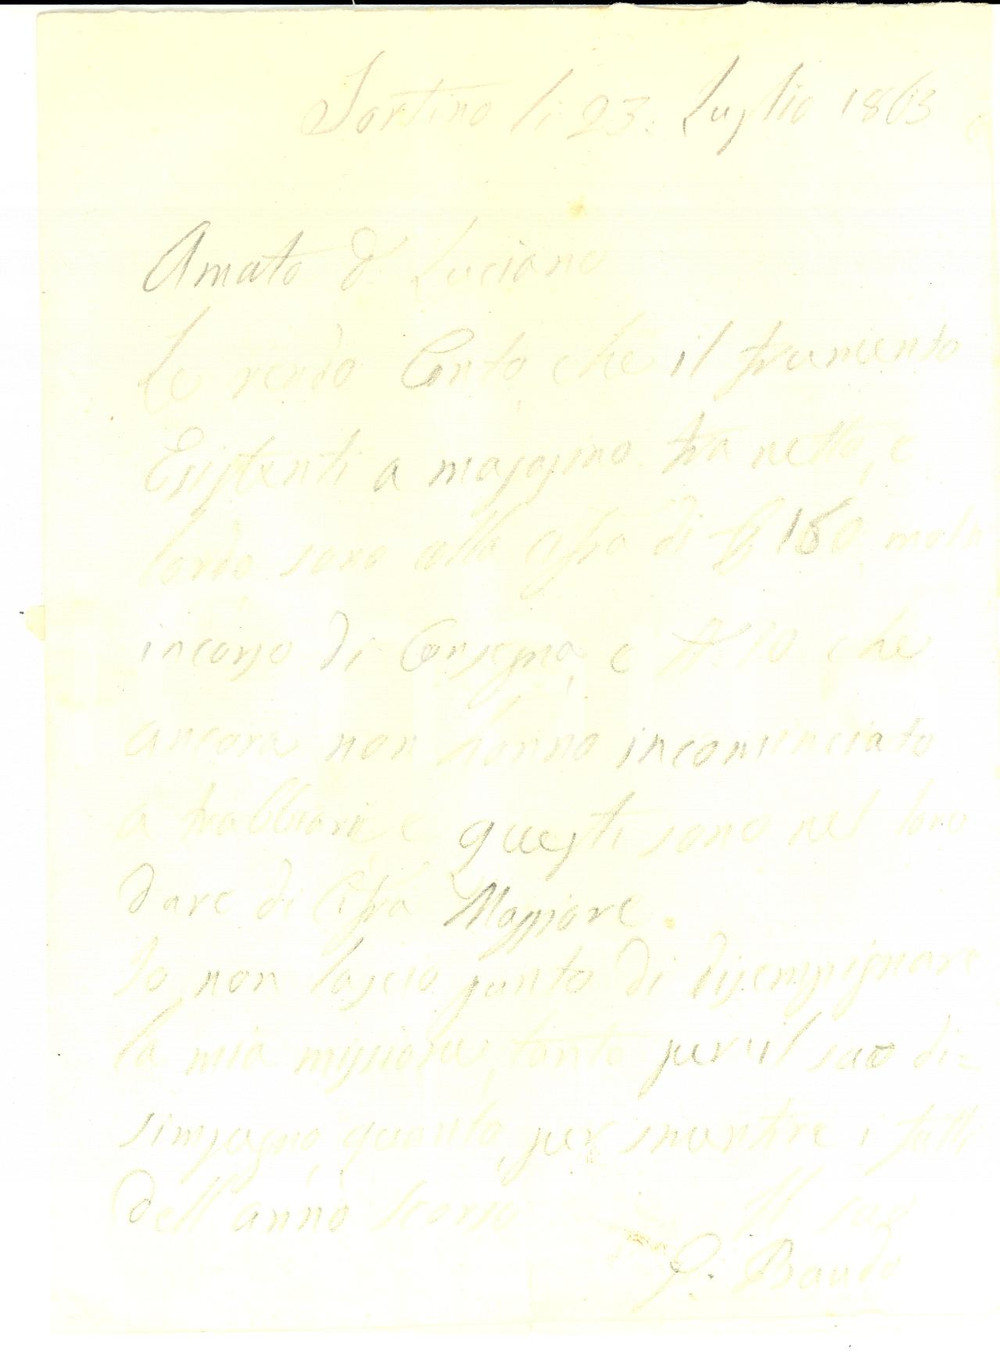 Sortino li 23. Luglio 1863
Amato D. Luciano
Le rendo Conto che il frumento
Esistenti a magasino tra netto, e
lordo sono alla cifra di 160 molti
incorso di Consegna, e che
ancora non hanno incominciato
a trabbiare e questi sono nel loro
dare di Cifra Maggiore.
Io non lascio punto di disempignare
la mia missione, tanto per il suo di=
simpegno, quanto, per smentire i fatti
dell'anno scorso Il suo
P. Baudo